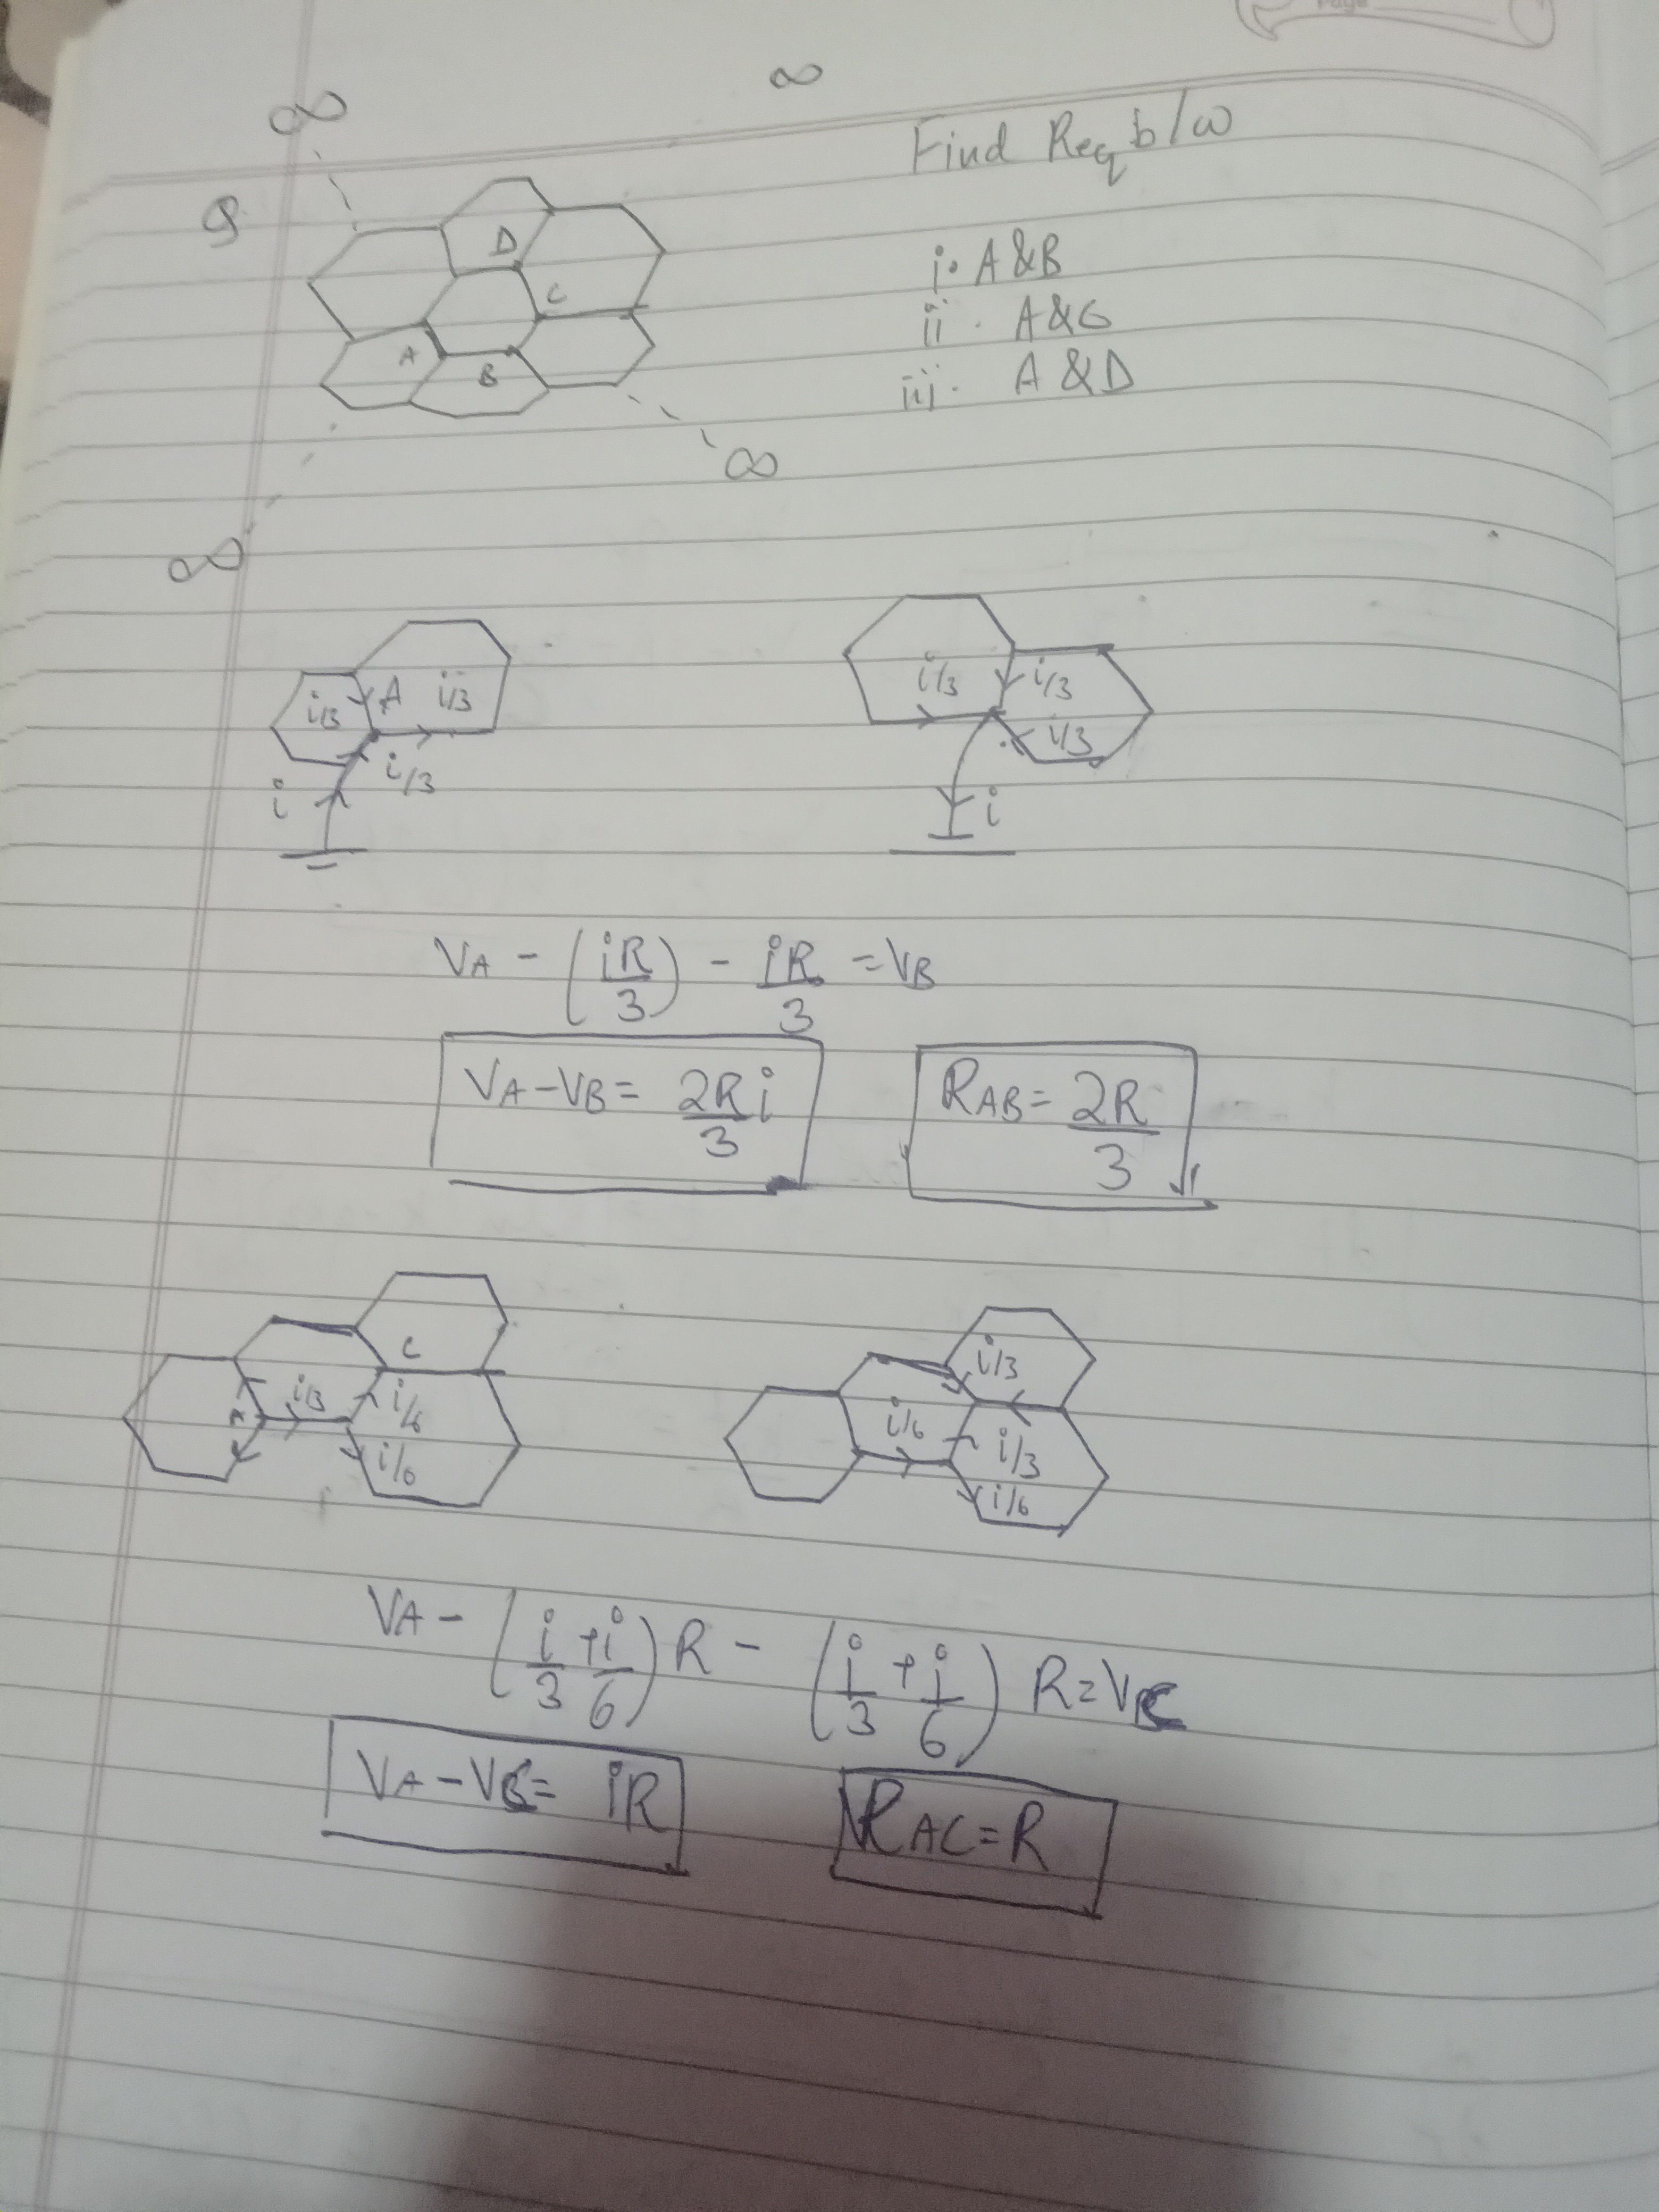 Page
∞
∞
Find Req b/w
Q
D
i. A&B
C
ii. A&C
A
iii. A&D
B
∞
∞
i/3 A i/3
i/3
i
i/3 i/3
i/3
i
VA - (iR/3) - iR/3 = VB
VA-VB = 2Ri/3 RAB = 2R/3
C
A i/3 i/6
i/6
i/3
i/6 i/3
i/6
VA - (i/3 + i/6)R - (i/3 + i/6)R = VC
VA-VC = iR RAC = R